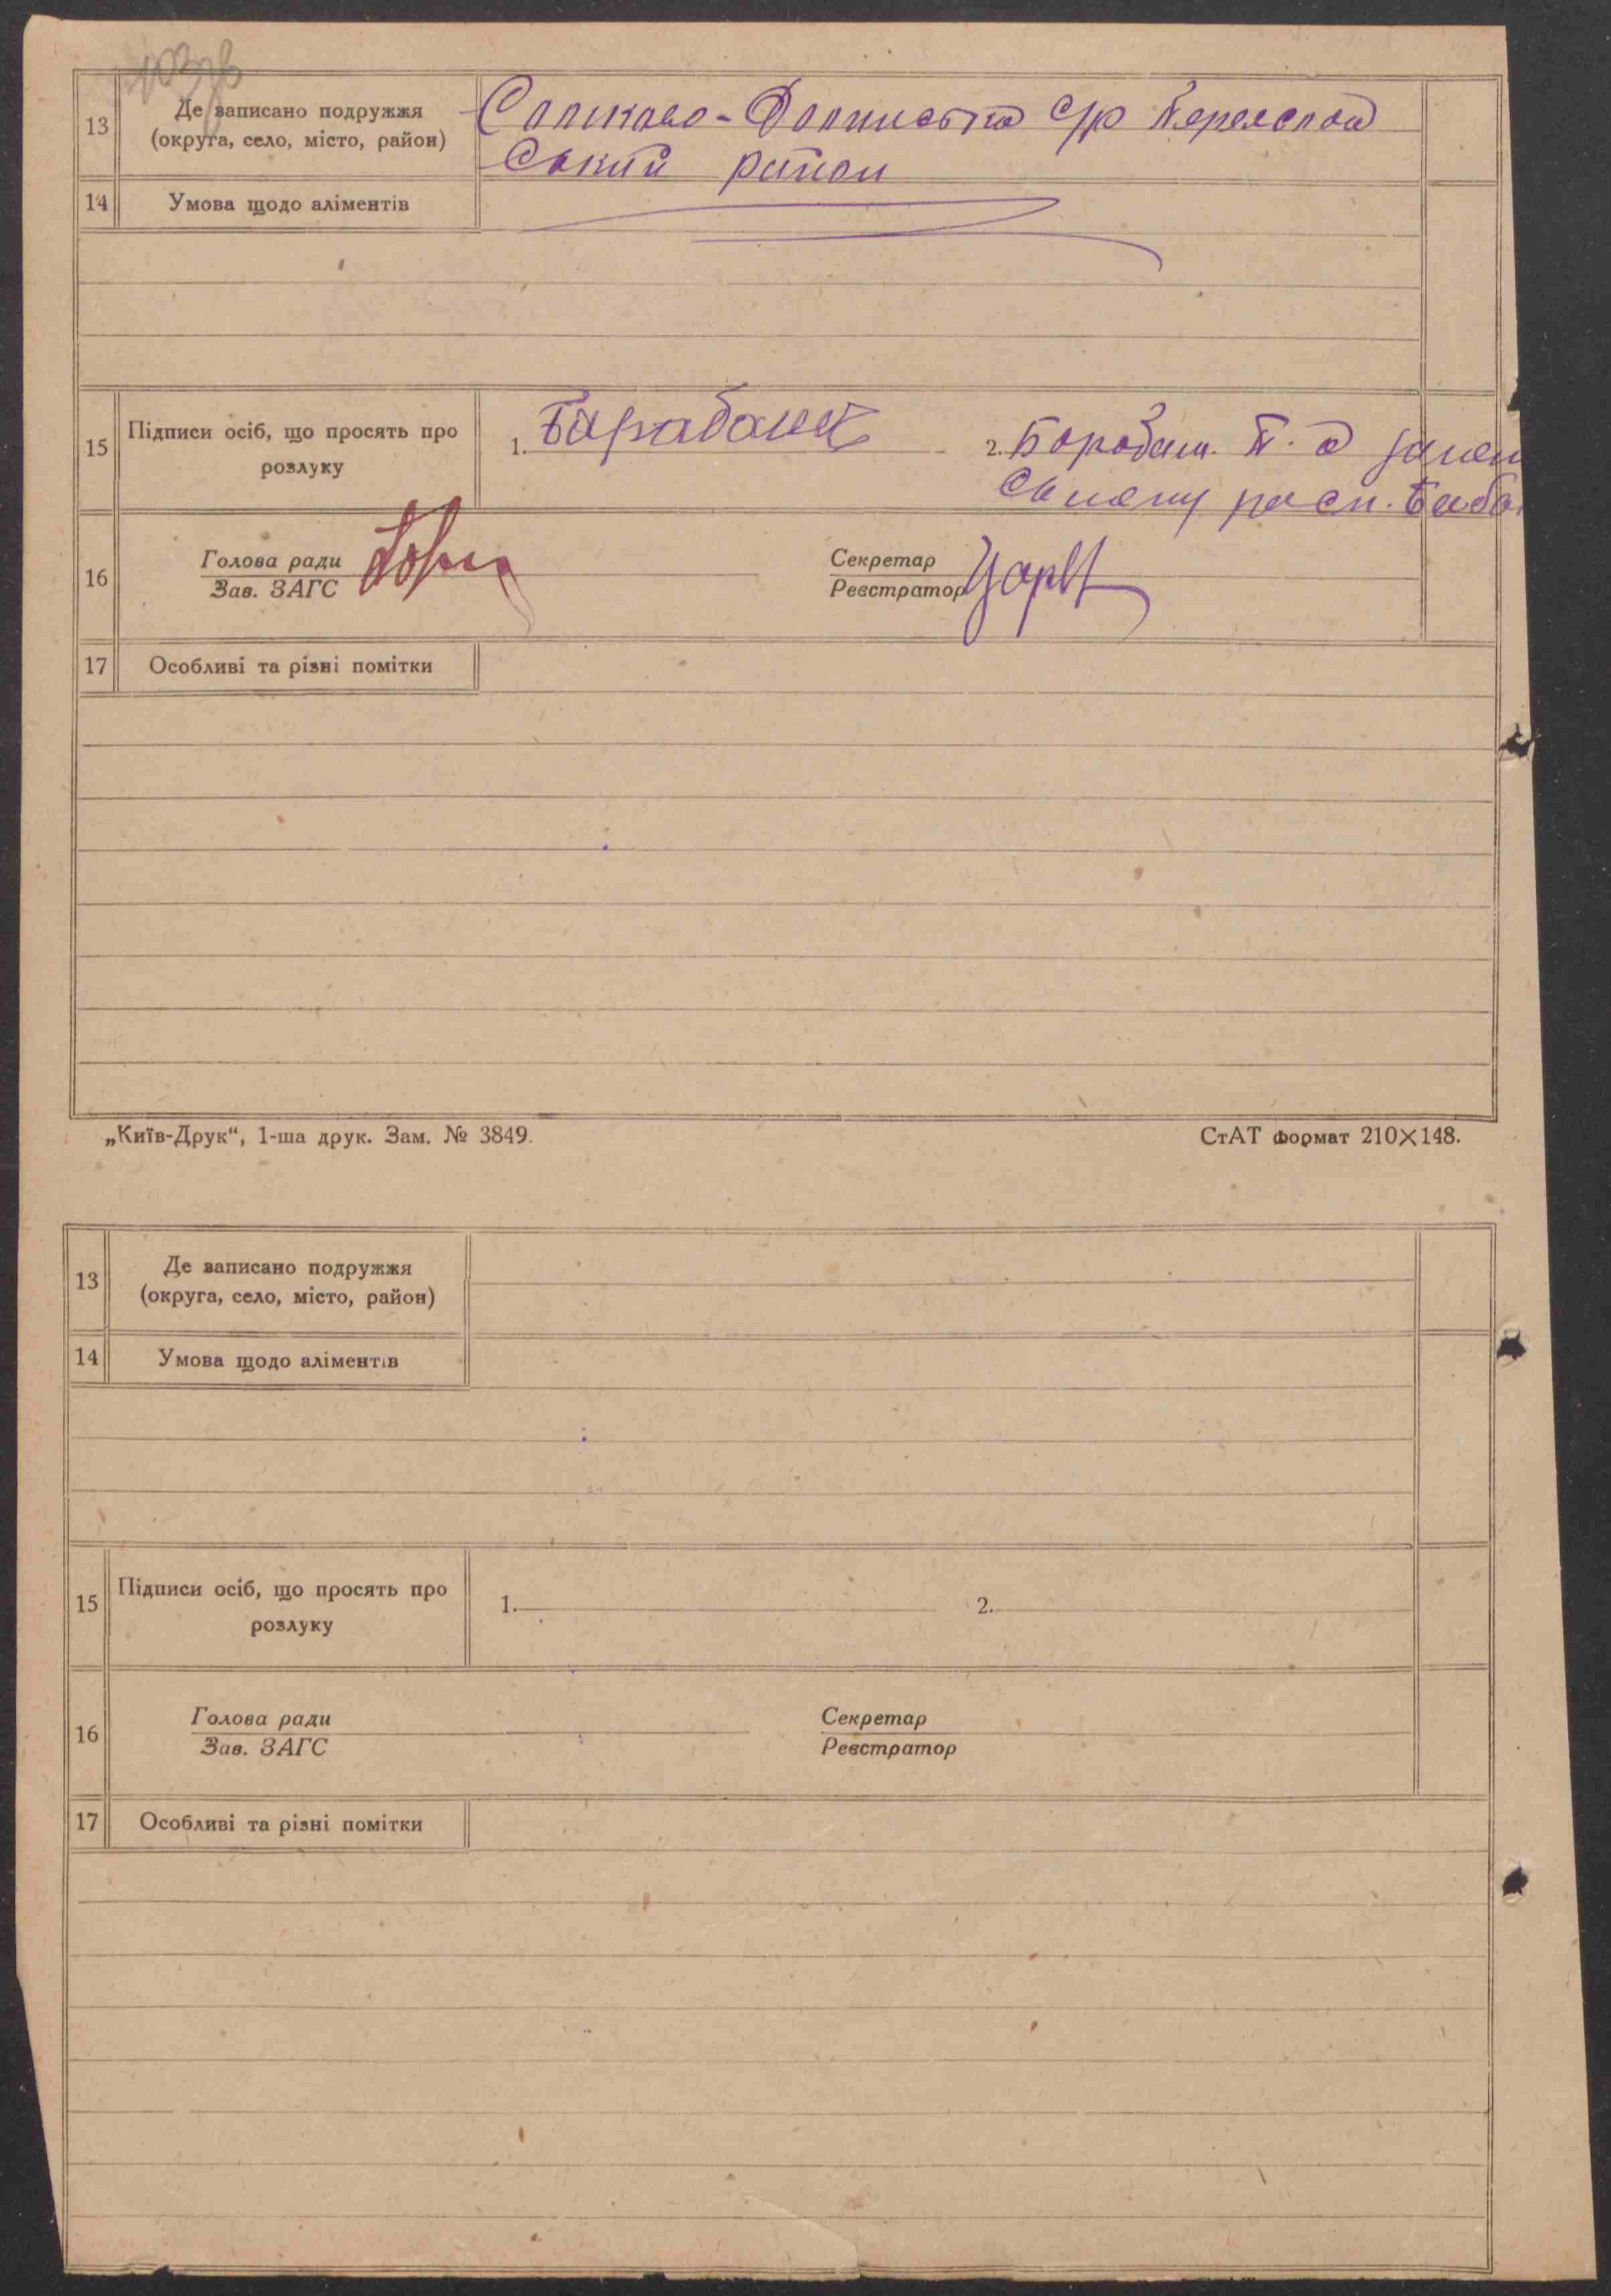 13
Де записано подружжя
(округа, село, місто, район)
с/р
ський район
14
Умова щодо аліментів
15
Підписи осіб, що просять про
розлуку
1. Барабаш
2.
16
Голова ради
Зав. ЗАГС
Секретар
Реєстратор
17
Особливі та різні помітки
„Київ-Друк“, 1-ша друк. Зам. № 3849.
СтАТ формат 210×148.
13
Де записано подружжя
(округа, село, місто, район)
14
Умова щодо аліментів
15
Підписи осіб, що просять про
розлуку
1.
2.
16
Голова ради
Зав. ЗАГС
Секретар
Реєстратор
17
Особливі та різні помітки